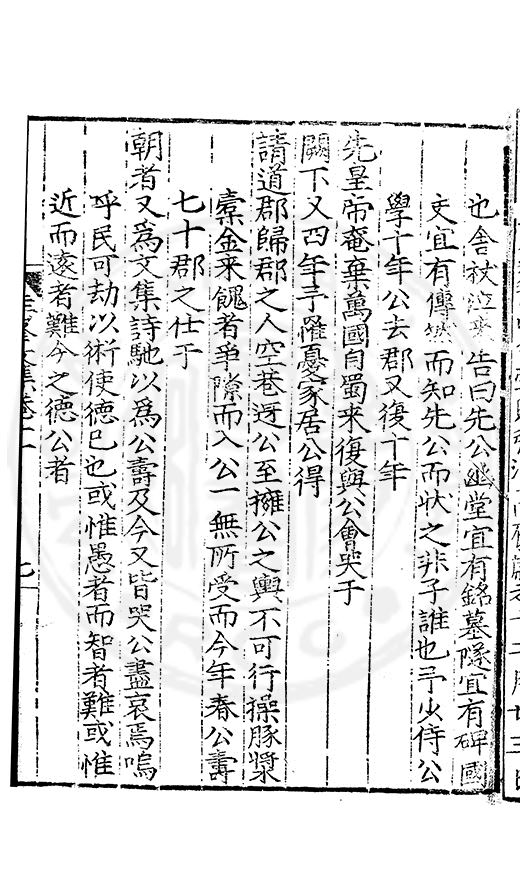 也舍杖泣來告曰先公幽堂宜有銘墓隧宜有碑國
史宜有傳然而知先公而狀之非子誰也予少侍公
學十年公去郡又復十年
先皇帝奄棄萬國自蜀来復與公會哭于
闕下又四年予罹憂家居公得
請道郡歸郡之人空巷迓公至擁公之輿不可行操豚漿
橐金来餽者爭隙而入公一無所受而今年春公壽
七十郡之仕于
朝者又為文集詩馳以為公壽及今又皆哭公盡哀焉嗚
呼民可劫以術使德巳也或惟愚者而智者難或惟
近而遠者難今之德公者
文集卷二
九